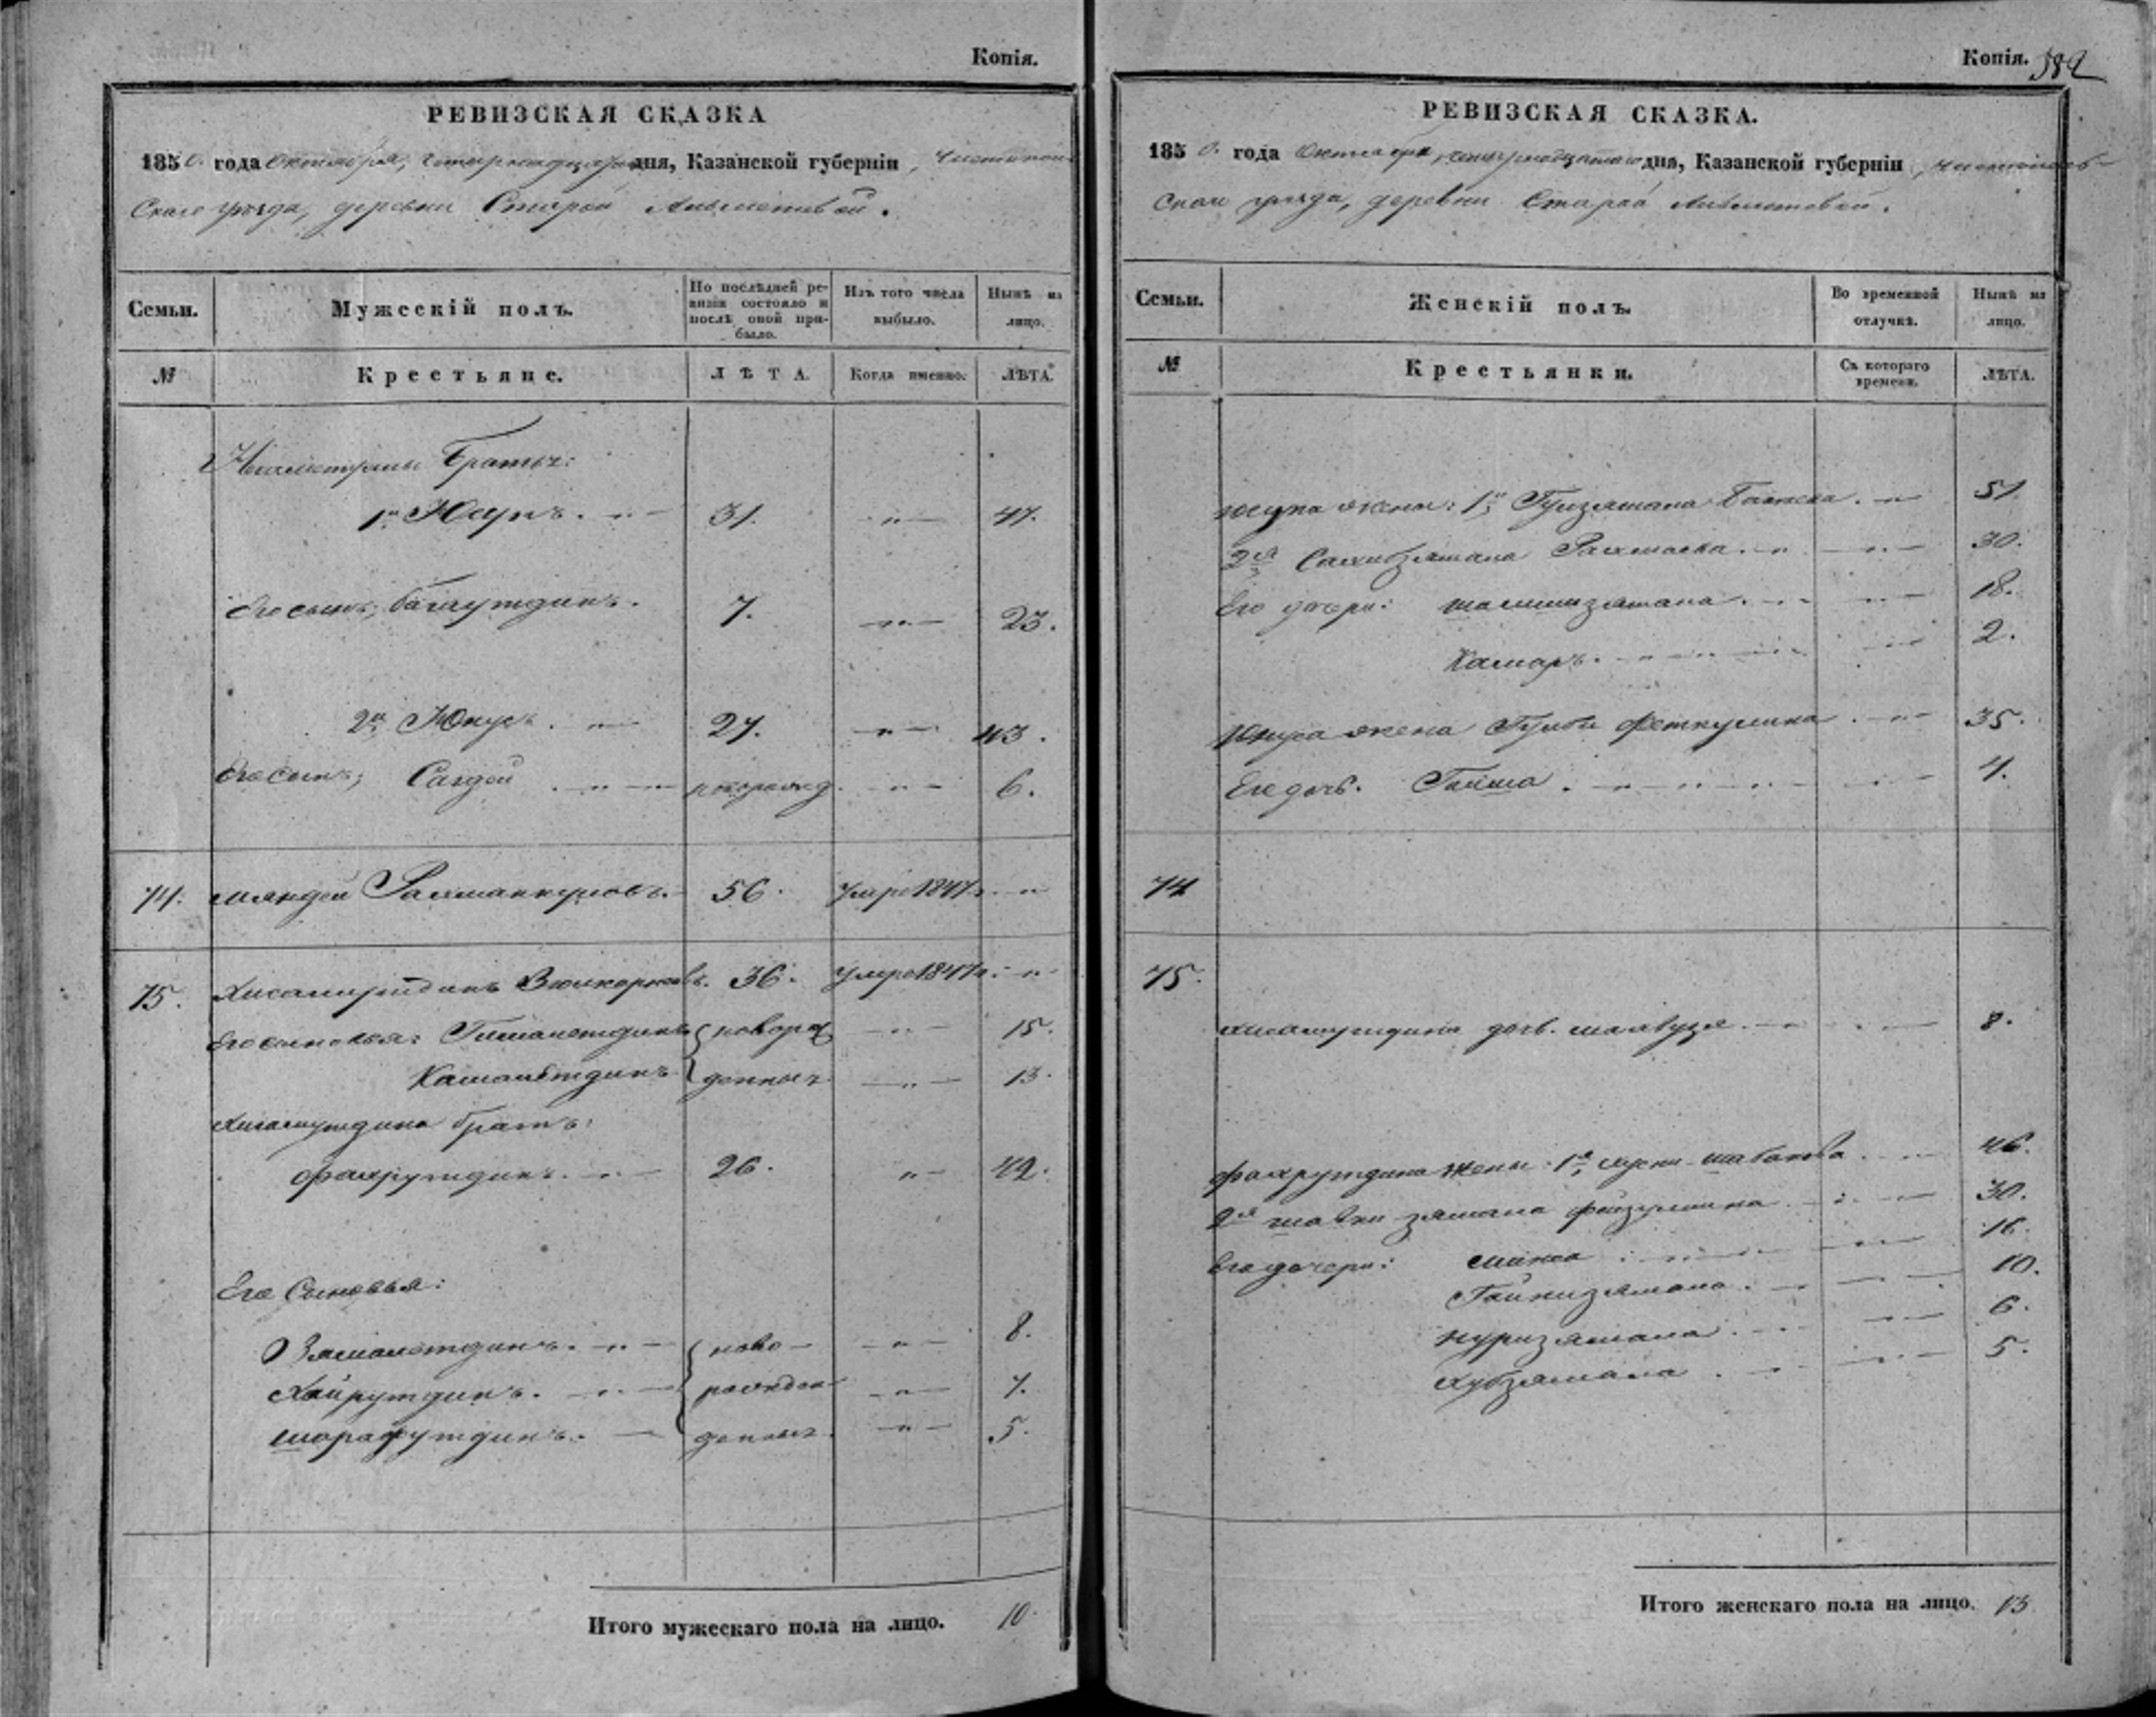 Копія.
РЕВИЗСКАЯ СКАЗКА
1850. года Октября, четырнадцатаго дня, Казанской губерніи, Чистополь-
скаго уѣзда, деревни Старой Альметевой.
Семьи.
Мужескій полъ.
По послѣдней ре-
визіи состояло и
послѣ оной при-
было.
Изъ того числа
выбыло.
Нынѣ на
лицо.
№
Крестьяне.
ЛѢТА.
Когда именно.
ЛѢТА.
Братья:
1й Юсупъ. 31. 47.
Его сынъ; Багаутдинъ. 7. 23.
2й Юнусъ. 27. 43.
Его сынъ; Сагдей 6.
74. Мяндей Рахманкуловъ. 56. Умре 1847 г.
75. Хисамутдинъ 36. Умре 1847 г.
Его сыновья: новорож 15.
Камалетдинъ денные 13.
Хисамутдина братъ:
Фахрутдинъ. 26. 42.
Его Сыновья:
Зямалетдинъ. ново- 8.
Хайрутдинъ. 7.
Шарафутдинъ. денные 5.
Итого мужескаго пола на лицо. 10.
Копія. 582
РЕВИЗСКАЯ СКАЗКА.
1850. года Октября, четырнадцатаго дня, Казанской губерніи, Чистополь-
скаго уѣзда, деревни Старой Альметевой.
Семьи.
Женскій полъ.
Во временной
отлучкѣ.
Нынѣ на
лицо.
№
Крестьянки.
Съ котораго
времени.
ЛѢТА.
Юсупа жены: 1я Гулзямала 51.
2я Сахибзямала 30.
Его дочери: Шамсизямала. 18.
Камаръ. 2.
Юнуса жена Гульби Феткулина. 35.
Его дочь. Гайша. 4.
74
75.
Хисамутдина дочь. 8.
Фахрутдина жены: 1я Шабанова. 46.
2я зямала Фейзуллина 30.
Его дочери: 16.
Гайнизямала. 10.
Нуризямала. 6.
Хубзямала. 5.
Итого женскаго пола на лицо. 13